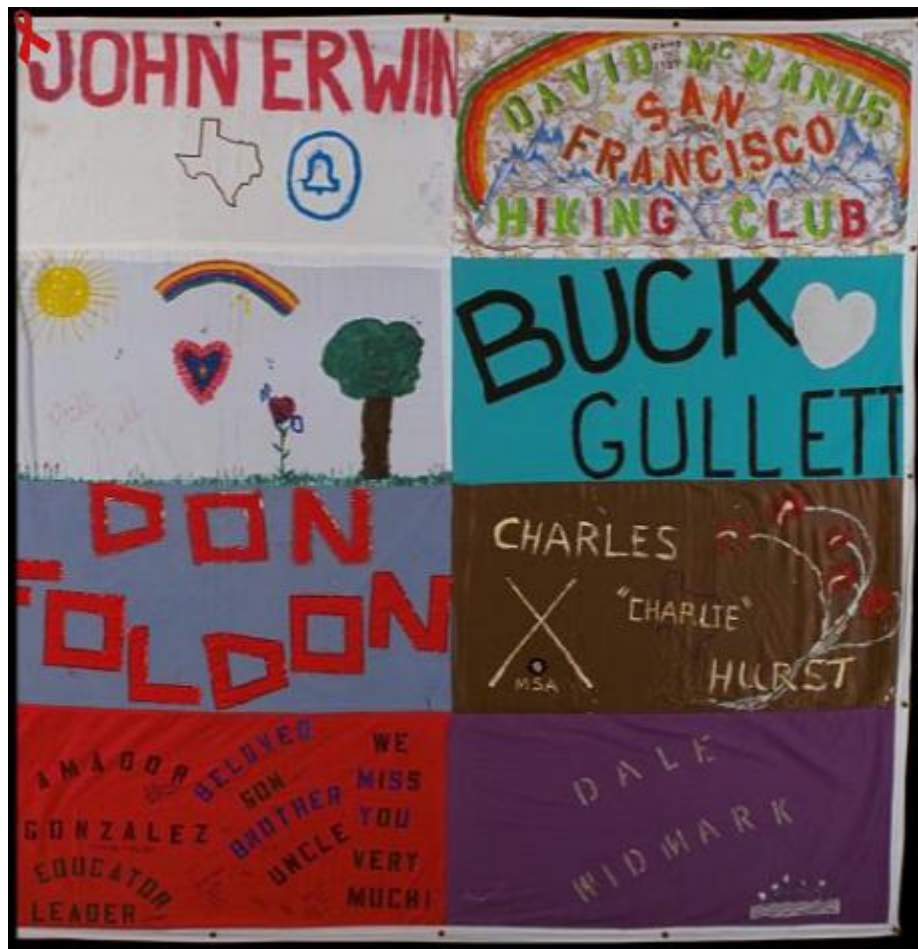 JOHN ERWIN
DAVID McMANUS
SAN
FRANCISCO
HIKING CLUB
BUCK
GULLETT
DON
FOLDON
CHARLES
"CHARLIE"
HURST
MSA
AMADOR
GONZALEZ
EDUCATOR
LEADER
BELOVED
SON
BROTHER
UNCLE
WE
MISS
YOU
VERY
MUCH!
DALE
WIDMARK